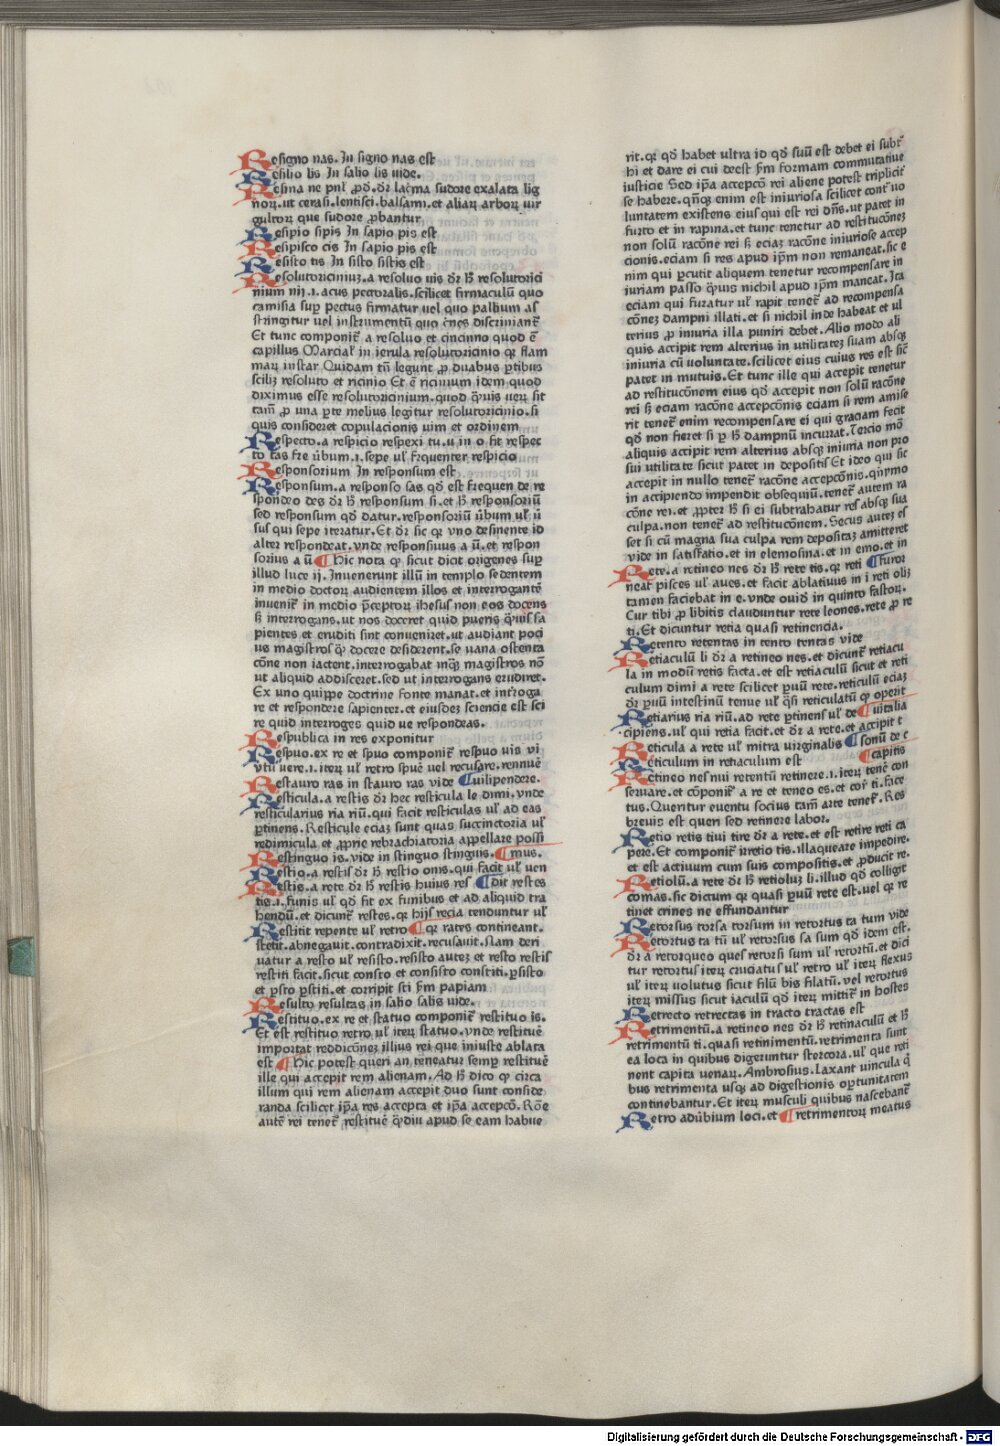 Resigno nas. In signo nas est
Resilio lis In salio lis vide.
Resina ne pnł ꝓd. dr̄ lacͥma sudore exalata lig
noꝝ. ut cerasi. lentisci. balsami. et aliaꝝ arboꝝ vir
gultoꝝ que sudore ꝓbantur
Resipio sipis In sapio pis est
Resipisco cis In sapio pis est
Resisto tis In sisto sistis est
Resolutoriciniuꝫ. a resoluo uis dr̄ h̄ resolutorici
nium nij .i. acus pectoralis. scilicet firmaculū quo
camisia suꝑ pectus firmatur uel quo pallium as
stringitur uel instrumentū quo cͥnes discriminant̄
Et tunc componit̄ a resoluo et cincinno quod ē
capillus Marciaľ in ierula resolutoricinio qꝫ flam
maꝝ instar Quidam tn̄ legunt ꝓ duabus ꝑtibus
sciliꝫ resoluto et ricinio Et ē ricinium idem quod
diximus esse resolutoricinium. quod qͣuis ueꝝ sit
tam̄ ꝓ una ꝑte melius legitur resolutoricinio. si
quis consideret copulacionis uim et ordinem
Respecto. a respicio respexi tu. u in o fit respec
to tas fre ūbum .i. sepe ul̕ frequenter respicio
Responsorium In responsum est
Responsum. a responso sas qd̕ est frequen de re
spondeo des dr̄ h̄ responsum si. et h̄ responsoriū
sed responsum qd̕ datur. responsoriū ūbum ul̕ ū
sus qui sepe iteratur. Et dr̄ sic qꝫ vno desinente id
alter respondeat. vnde responsiuus a ū. et respon
sorius a ū ¶ Hic nota qꝫ sicut dicit origenes suꝑ
illud luce ij. Inuenerunt illū in templo sedentem
in medio doctoꝝ audientem illos et interrogantē
inuenit̄ in medio p̄ceptoꝝ ihesus non eos docens
sꝫ interrogans. ut nos doceret quid pueris qͣuis sa
pientes et eruditi sint conueniret. ut audiant poci
us magistros qͣꝫ docere desiderent. se uana ostenta
cōne non iactent. interrogabat inqͣꝫ magistros nō
ut aliquid addisceret. sed ut interrogans erudiret.
Ex uno quippe doctrine fonte manat. et int̄roga
re et respondere sapienter. et eiusdeꝫ sciencie est sci
re quid interroges quid ue respondeas.
Respublica in res exponitur
Respuo. ex re et spuo componit̄ respuo uis vi
vtū uere .i. iteꝝ ul̕ retro spuē vel recusare. rennuē
Restauro ras in stauro ras vide ¶ uilipendere.
Resticula. a restis dr̄ hec resticula le dimi. vnde
resticularius ria riū. qui facit resticulas ul̕ ad eas
ꝑtinens. Resticule eciaꝫ sunt quas succinctoria ul̕
redimicula et ꝓprie rebrachiatoria appellare possi
Restinguo is. vide in stinguo stinguis. ¶ mus.
Restio. a restis dr̄ h̄ restio onis. qui facit ul̕ ven
Restis. a rete dr̄ h̄ restis huius res ¶ dit restes
tis .i. funis ul̕ qd̕ fit ex funibus et ad aliquid tra
hendū. et dicunt̄ restes. qꝫ hijs recia tenduntur ul̕
Restitit repente ul̕ retro ¶ qꝫ rates contineant.
stetit. abnegauit. contradixit. recusauit. Nam deri
uatur a resto ul̕ resisto. resisto auteꝫ et resto restis
restiti facit. sicut consto et consisto constiti. ꝑsisto
et ꝑsto ꝑstiti. et corripit sti s̄m papiam
Resulto resultas in salio salis uide.
Restituo. ex re et statuo componit̄ restituo is.
Et est restituo retro ul̕ iteꝝ statuo. vnde restituē
importat reddicōneꝫ illius rei que iniuste ablata
est ¶ Hic potest queri an teneatur semꝑ restituē
ille qui accepit rem alienam. Ad h̄ dico qꝫ circa
illum qui rem alienam accepit duo sunt conside
randa scilicet ip̄a res accepta et ip̄a accepcō. Rōe
aut̄ rei tenet̄ restituē qͣdiu apud se eam habue
rit. qꝫ qd̕ habet ultra id qd̕ suū est debet ei subtͣ
hi et dare ei cui deest s̄m formam commutatiue
iusticie Sed ip̄a accepcō rei aliene potest tripliciť
se habere. qn̄qꝫ enim est iniuriosa scilicet contͣ uo
luntatem existens eius qui est rei dn̄s. ut patet in
furto et in rapina. et tunc tenetur ad restitucōneꝫ
non solū racōne rei sꝫ eciaꝫ racōne iniuriose accep
cionis. eciam si res apud ip̄m non remaneat. sic e
nim qui ꝑcutit aliquem tenetur recompensare in
iuriam passo qͣuis nichil apud ip̄m maneat. Ita
eciam qui furatur ul̕ rapit tenet̄ ad recompensa
cōneꝫ dampni illati. et si nichil inde habeat et ul
terius ꝓ iniuria illa puniri debet. Alio modo ali
quis accipit rem alterius in utilitateꝫ suam absqꝫ
iniuria cū uoluntate. scilicet eius cuius res est sic̄
patet in mutuis. Et tunc ille qui accepit tenetur
ad restitucōnem eius qd̕ accepit non solū racōne
rei sꝫ eciam racōne accepcōnis eciam si rem amise
rit tenet̄ enim recompensare ei qui graciam fecit
qd̕ non fieret si ꝑ h̄ dampnū incurrat. Tercio mō
aliquis accipit rem alterius absqꝫ iniuria non pro
sui utilitate sicut patet in depositis Et ideo qui sic
accepit in nullo tenet̄ racōne accepcōnis. qn̄ymo
in accipiendo impendit obsequiū. tenet̄ autem ra
cōne rei. et ꝓpter h̄ si ei subtrahatur res absqꝫ sua
culpa. non tenet̄ ad restitucōnem. Secus auteꝫ es
set si cū magna sua culpa rem depositaꝫ amitteret
vide in satisfatio. et in elemosina. et in emo. et in
Rete. a retineo nes dr̄ h̄ rete tis. qꝫ reti ¶ furor
neat pisces ul̕ aues. et facit ablatiuus in i reti oliꝫ
tamen faciebat in e. vnde ouid̕ in quinto fastoꝝ.
Cur tibi ꝓ libitis clauduntur rete leones. rete ꝓ re
ti. Et dicuntur retia quasi retinencia.
Retento retentas in tento tentas vide
Retiaculū li dr̄ a retineo nes. et dicunt̄ retiacu
la in modū retis facta. et est retiaculū sicut et reti
culum dimi a rete scilicet ꝑuū rete. reticulū eciaꝫ
dr̄ ꝑuū intestinū tenue ul̕ qͣsi reticulatū qꝫ operit
Retiarius ria riū. ad rete ꝑtinens ul̕ de ¶ uitalia
cipiens. ul̕ qui retia facit. et dr̄ a rete. et accipit t
Reticula a rete ul̕ mitra virginalis ¶ sonū de c
Reticulum in retiaculum est ¶ capitis
Retineo nes nui retentū retinere .i. iteꝝ tenē con
seruare. et cōponit̄ a re et teneo es. et corͬ ti. face
tus. Queritur euentu socius tam̄ arte tenet̄. Res
breuis est queri sed retinere labor.
Retio retis tiui tire dr̄ a rete. et est retire reti ca
pere. Et componit̄ irretio tis. illaqueare impedire.
et est actiuum cum suis compositis. et ꝓducit re.
Retiolū. a rete dr̄ h̄ retioluꝫ li. illud qd̕ colligit
comas. sic dictum qꝫ quasi ꝑuū rete est. vel qꝫ re
tinet crines ne effundantur
Retorsus torsa torsum in retortus ta tum vide
Retortus ta tū ul̕ retorsus sa sum qd̕ idem est.
dr̄ a retorqueo ques retorsi sum ul̕ retortū. et dici
tur retortus iteꝝ cruciatus ul̕ retro ul̕ iteꝝ flexus
ul̕ iteꝝ uolutus sicut filū bis filatū. vel retortus
iteꝝ missus sicut iaculū qd̕ iteꝝ mittit̄ in hostes
Retrecto retrectas in tracto tractas est
Retrimentū. a retineo nes dr̄ h̄ retinaculū et h̄
retrimentū ti. quasi retinimentū. retrimenta sunt
ea loca in quibus digeruntur stercora. ul̕ que reti
nent capita uenaꝝ. Ambrosius. Laxant vincula qͥ
bus retrimenta usqꝫ ad digestionis oꝑtunitatem
continebantur. Et iteꝝ musculi quibus nascebant̄
Retro adūbium loci. et ¶ retrimentoꝝ meatus
Digitalisierung gefördert durch die Deutsche Forschungsgemeinschaft - DFG